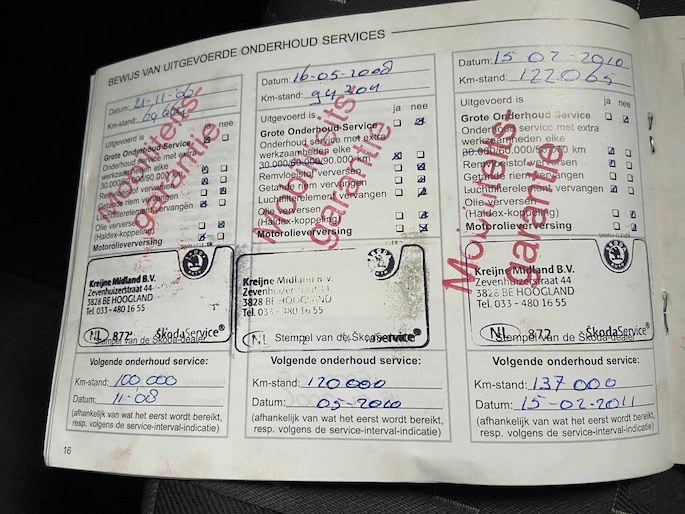 BEWIJS VAN UITGEVOERDE ONDERHOUD SERVICES
Datum: 21-11-06
Km-stand:
Uitgevoerd is
Grote Onderhoud Service
Onderhoud service met extra
werkzaamheden elke
30.000/60.000/90.000 km
Remvloeistof verversen
Getande riem vervangen
Luchtfilterelement vervangen
Olie verversen
(Haldex-koppeling)
Motorolieverversing
Mobiliteits
garantie
SIMPLY CLEVER
Kreijne Midland B.V.
Zevenhuizerstraat 44
3828 BE HOOGLAND
Tel. 033 - 480 16 55
NL 872 ŠkodaService®
Stempel van de Škoda-dealer
Volgende onderhoud service:
Km-stand: 100 000
Datum: 11-'08
(afhankelijk van wat het eerst wordt bereikt,
resp. volgens de service-interval-indicatie)
16
Datum: 16-05-2008
Km-stand: 94 204
Uitgevoerd is ja nee
Grote Onderhoud Service
Onderhoud service met extra
werkzaamheden elke
30.000/60.000/90.000 km
Remvloeistof verversen
Getande riem vervangen
Luchtfilterelement vervangen
Olie verversen
(Haldex-koppeling)
Motorolieverversing
Mobiliteits
garantie
Kreijne Midland B.V.
Zevenhuizerstraat 44
3828 BE HOOGLAND
Tel. 033 - 480 16 55
NL Stempel van de ŠkodaService®
Volgende onderhoud service:
Km-stand: 120000
Datum: 05-2010
(afhankelijk van wat het eerst wordt bereikt,
resp. volgens de service-interval-indicatie)
Datum: 15 02-2010
Km-stand: 122.065
Uitgevoerd is ja nee
Grote Onderhoud Service
Onderhoud service met extra
werkzaamheden elke
30.000/60.000/90.000 km
Remvloeistof verversen
Getande riem vervangen
Luchtfilterelement vervangen
Olie verversen
(Haldex-koppeling)
Motorolieverversing
Mobiliteits
garantie
SIMPLY CLEVER
Kreijne Midland B.V.
Zevenhuizerstraat 44
3828 BE HOOGLAND
Tel. 033 - 480 16 55
NL 872 ŠkodaService®
Stempel van de Škoda-dealer
Volgende onderhoud service:
Km-stand: 137 000
Datum: 15-02-2011
(afhankelijk van wat het eerst wordt bereikt,
resp. volgens de service-interval-indicatie)